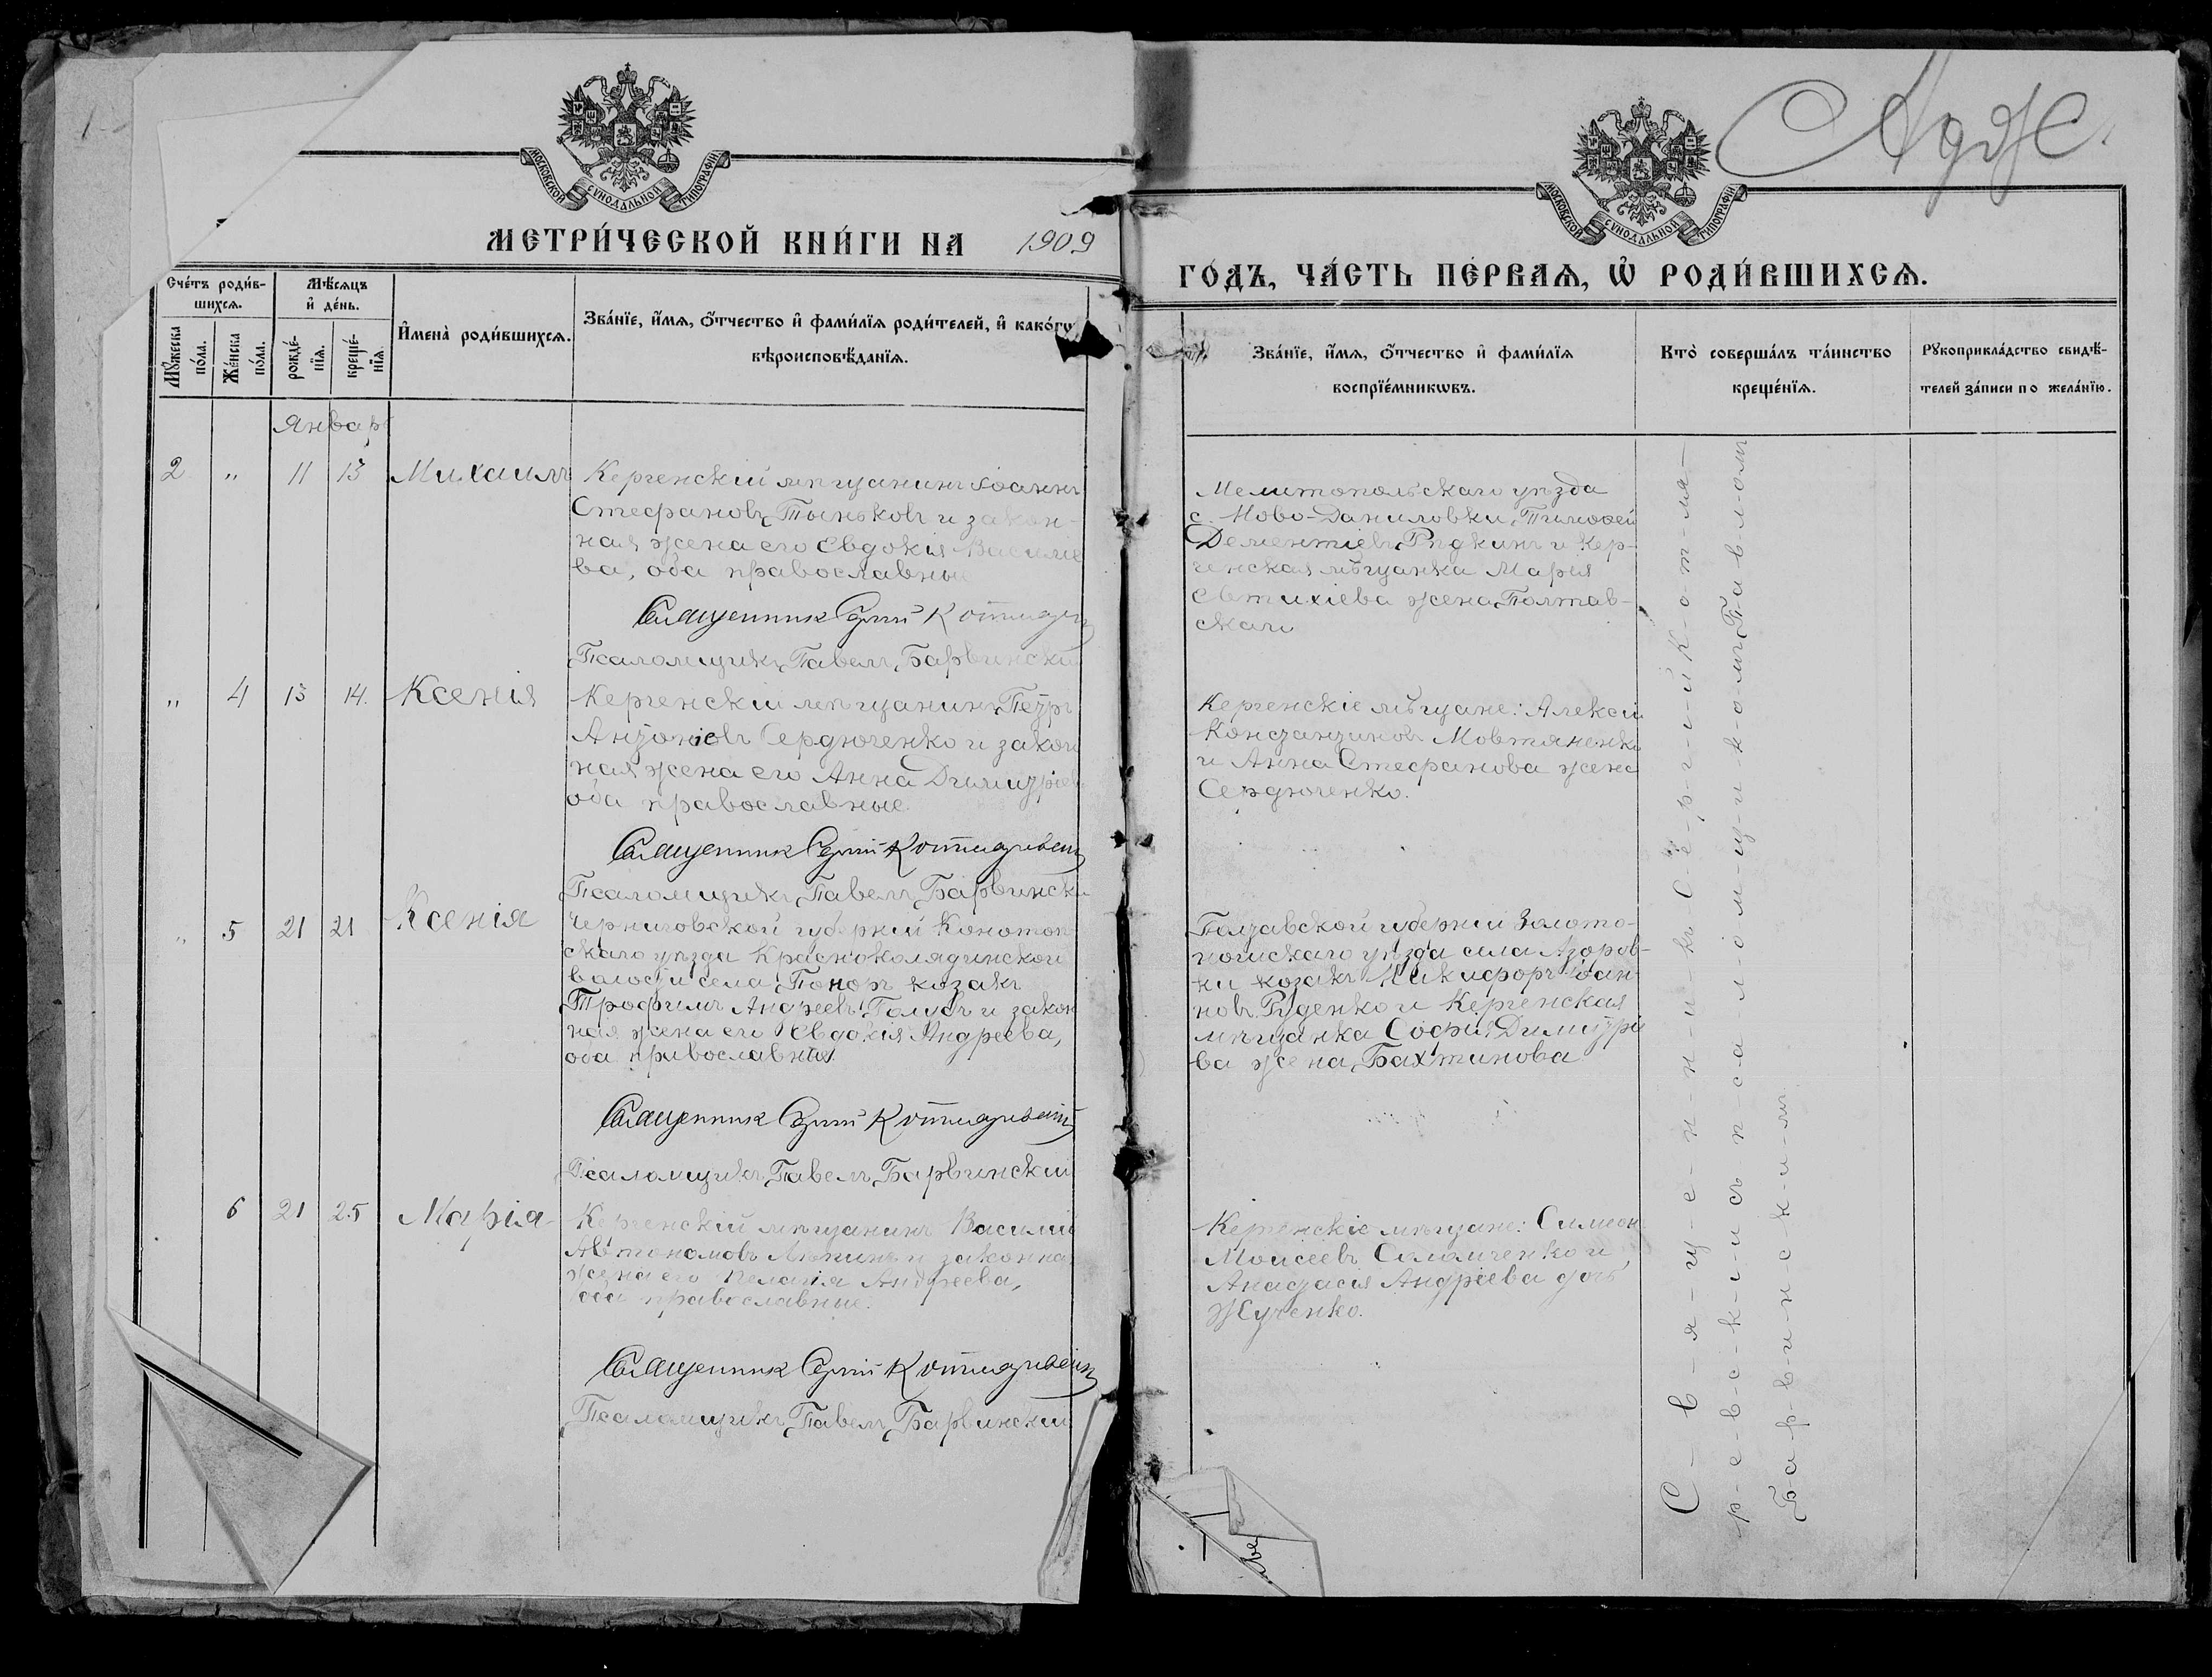 Адж.
МОСКОВСКОЙ СѴНОДАЛЬНОЙ ТИПОГРАФІИ
МОСКОВСКОЙ СѴНОДАЛЬНОЙ ТИПОГРАФІИ
МЕТРИ́ЧЕСКОЙ КНИ́ГИ НА 1909
ГО́ДЪ, ЧА́СТЬ ПЕ́РВАѦ, Ѡ҆ РОДИ́ВШИХСѦ.
Сче́тъ роди́в-
шихсѧ.
Мꙋ́жеска по́ла.
Же́нска по́ла.
Мѣ́сѧцъ
и҆ де́нь.
рожде́-
нїѧ.
креще́-
нїѧ.
И҆мена̀ роди́вшихсѧ.
Зва́нїе, и҆́мѧ, ѻ҆́тчество и҆ фами́лїѧ роди́телей, и҆ како́гѡ
вѣроисповѣ́данїѧ.
Зва́нїе, и҆́мѧ, ѻ҆́тчество и҆ фами́лїѧ
воспрїе́мникѡвъ.
Кто̀ соверша́лъ та́инство
креще́нїѧ.
Рꙋкоприкла́дство свидѣ́-
телей за́писи по жела́нїю.
Январь
2 " 11 13 Михаилъ
Керченскій мѣщанинъ Іоаннъ
Стефановъ Тыньковъ и закон-
ная жена его Евдокія Василіе
ва, оба православные
Священник Сергий Котляр
Псаломщикъ Павелъ Барвинскій
Мелитопольскаго уѣзда
с. Ново-Даниловки, Тимоѳей
Дементіевъ Рѣдкинъ и Кер-
ченская мѣщанка Марія
Евтихіева жена Полтав-
скаго
" 4 13 14. Ксенія
Керченскій мѣщанинъ Петръ
Антоніевъ Сердюченко и закон
ная жена его Анна Димитріев
оба православные
Священник Сергий Котляревский
Псаломщикъ Павелъ Барвински
Керченскіе мѣщане: Алексій
Константиновъ Мовтяненко
и Анна Стефанова жена
Сердюченко.
" 5 21 21 Ксенія
Черниговской губерній Конотоп
скаго уѣзда Красноколядинской
волости села Поноръ козакъ
Трофимъ Андреевъ Голубъ и закон
ная жена его Евдокія Андреева,
оба православныя
Священник Сергий Котляревский
Псаломщикъ Павелъ Барвинскій
Полтавской губерніи Золото-
ношскаго уѣзда села
ки козакъ Никифоръ Іоан-
новъ Руденко и Керченская
мѣщанка Софія Димитріе
ва жена Бахтинова
6 21 25 Марія
Керченскій мѣщанинъ Василій
Автономовъ и законная
жена его Пелагія Андреева,
оба православные.
Священник Сергий Котляревский
Псаломщикъ Павелъ Барвинскій
Керченскіе мѣщане: Симеонъ
Моисеевъ Соломченко и
Анастасія Андреева дочь
Жученко.
С-в-я-щ-е-н-н-и-къ С-е-р-г-і-й К-о-т-ля-
р-е-в-с-к-і-й съ п-с-а-л-о-м-щ-и-к-о-мъ П-а-в-л-омъ
Б-а-р-в-и-н-с-к-и-мъ